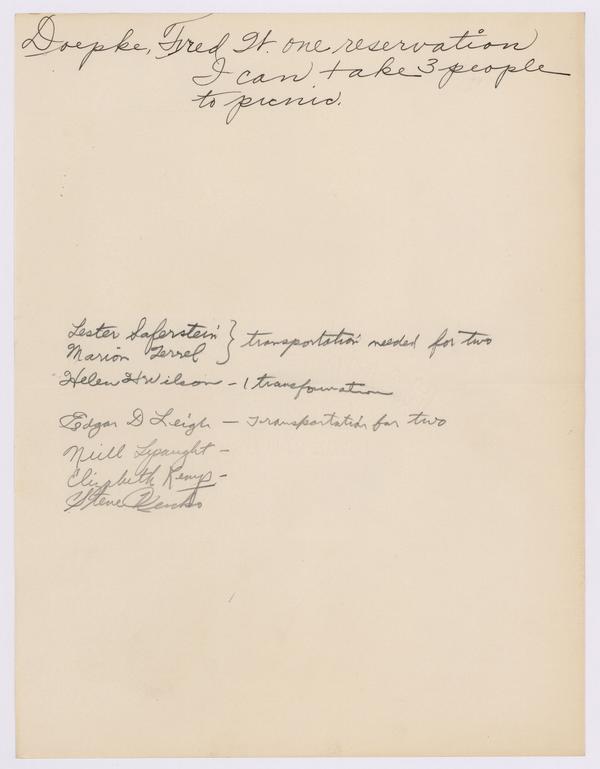 Doepke, Fred W. one reservation
I can take 3 people
to picnic.
Lester Saferstein } transportation needed for two
Marion Terrel
Helen H Wilson - 1 transformation
Edgar D Leigh - Transportation for two
Niell Spaught -
Elizabeth Kemp -
Steve